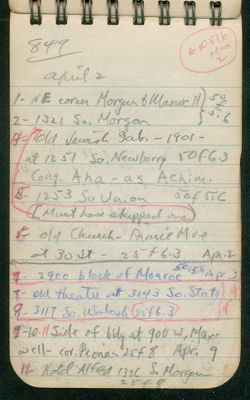 849
April 2
1- NE corner Morgan & Maxwell
2- 1321 So. Morgan
3- Old Jewish Tab. - 1901-
at 1251 So. Newberry 50 F6.3
Cong. Aha- as Achim.
1253 So Union 50 f5.6
(Must have skipped one)
6- old Church - Prairie Ave
at 30 St - 25 f 6.3 Apr. 2
7- 2900 block of Monroe 50 f5.6 Apr 3
8- old theatre at 3143 So. State
9- 3117 So. Wabash 25 f6.3
9-10 11 Side of bldg at 900 W. Max-
well - cor. Peoria 25 f8 Apr. 9
Hotel Alfred 1336 So Morgan
25 f8